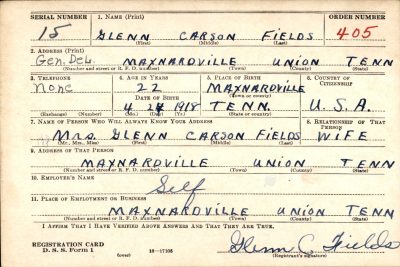 SERIAL NUMBER 1. NAME (Print) ORDER NUMBER
15 GLENN CARSON FIELDS 405
(First) (Middle) (Last)
2. ADDRESS (Print)
Gen. Del. MAYNARDVILLE UNION TENN
(Number and street or R. F. D. number) (Town) (County) (State)
3. TELEPHONE 4. AGE IN YEARS 5. PLACE OF BIRTH 6. COUNTRY OF CITIZENSHIP
None 22 MAYNARDVILLE
DATE OF BIRTH (Town or county)
4 24 1918 TENN. U.S.A.
(Exchange) (Number) (Mo.) (Day) (Yr.) (State or country)
7. NAME OF PERSON WHO WILL ALWAYS KNOW YOUR ADDRESS 8. RELATIONSHIP OF THAT PERSON
Mrs. GLENN CARSON FIELDS WIFE
(Mr., Mrs., Miss) (First) (Middle) (Last)
9. ADDRESS OF THAT PERSON
MAYNARDVILLE UNION TENN
(Number and street or R. F. D. number) (Town) (County) (State)
10. EMPLOYER'S NAME
Self
11. PLACE OF EMPLOYMENT OR BUSINESS
MAYNARDVILLE UNION TENN
(Number and street or R. F. D. number) (Town) (County) (State)
I AFFIRM THAT I HAVE VERIFIED ABOVE ANSWERS AND THAT THEY ARE TRUE.
REGISTRATION CARD
D. S. S. Form 1 (over) 16-17105 Glenn C. Fields
(Registrant's signature)